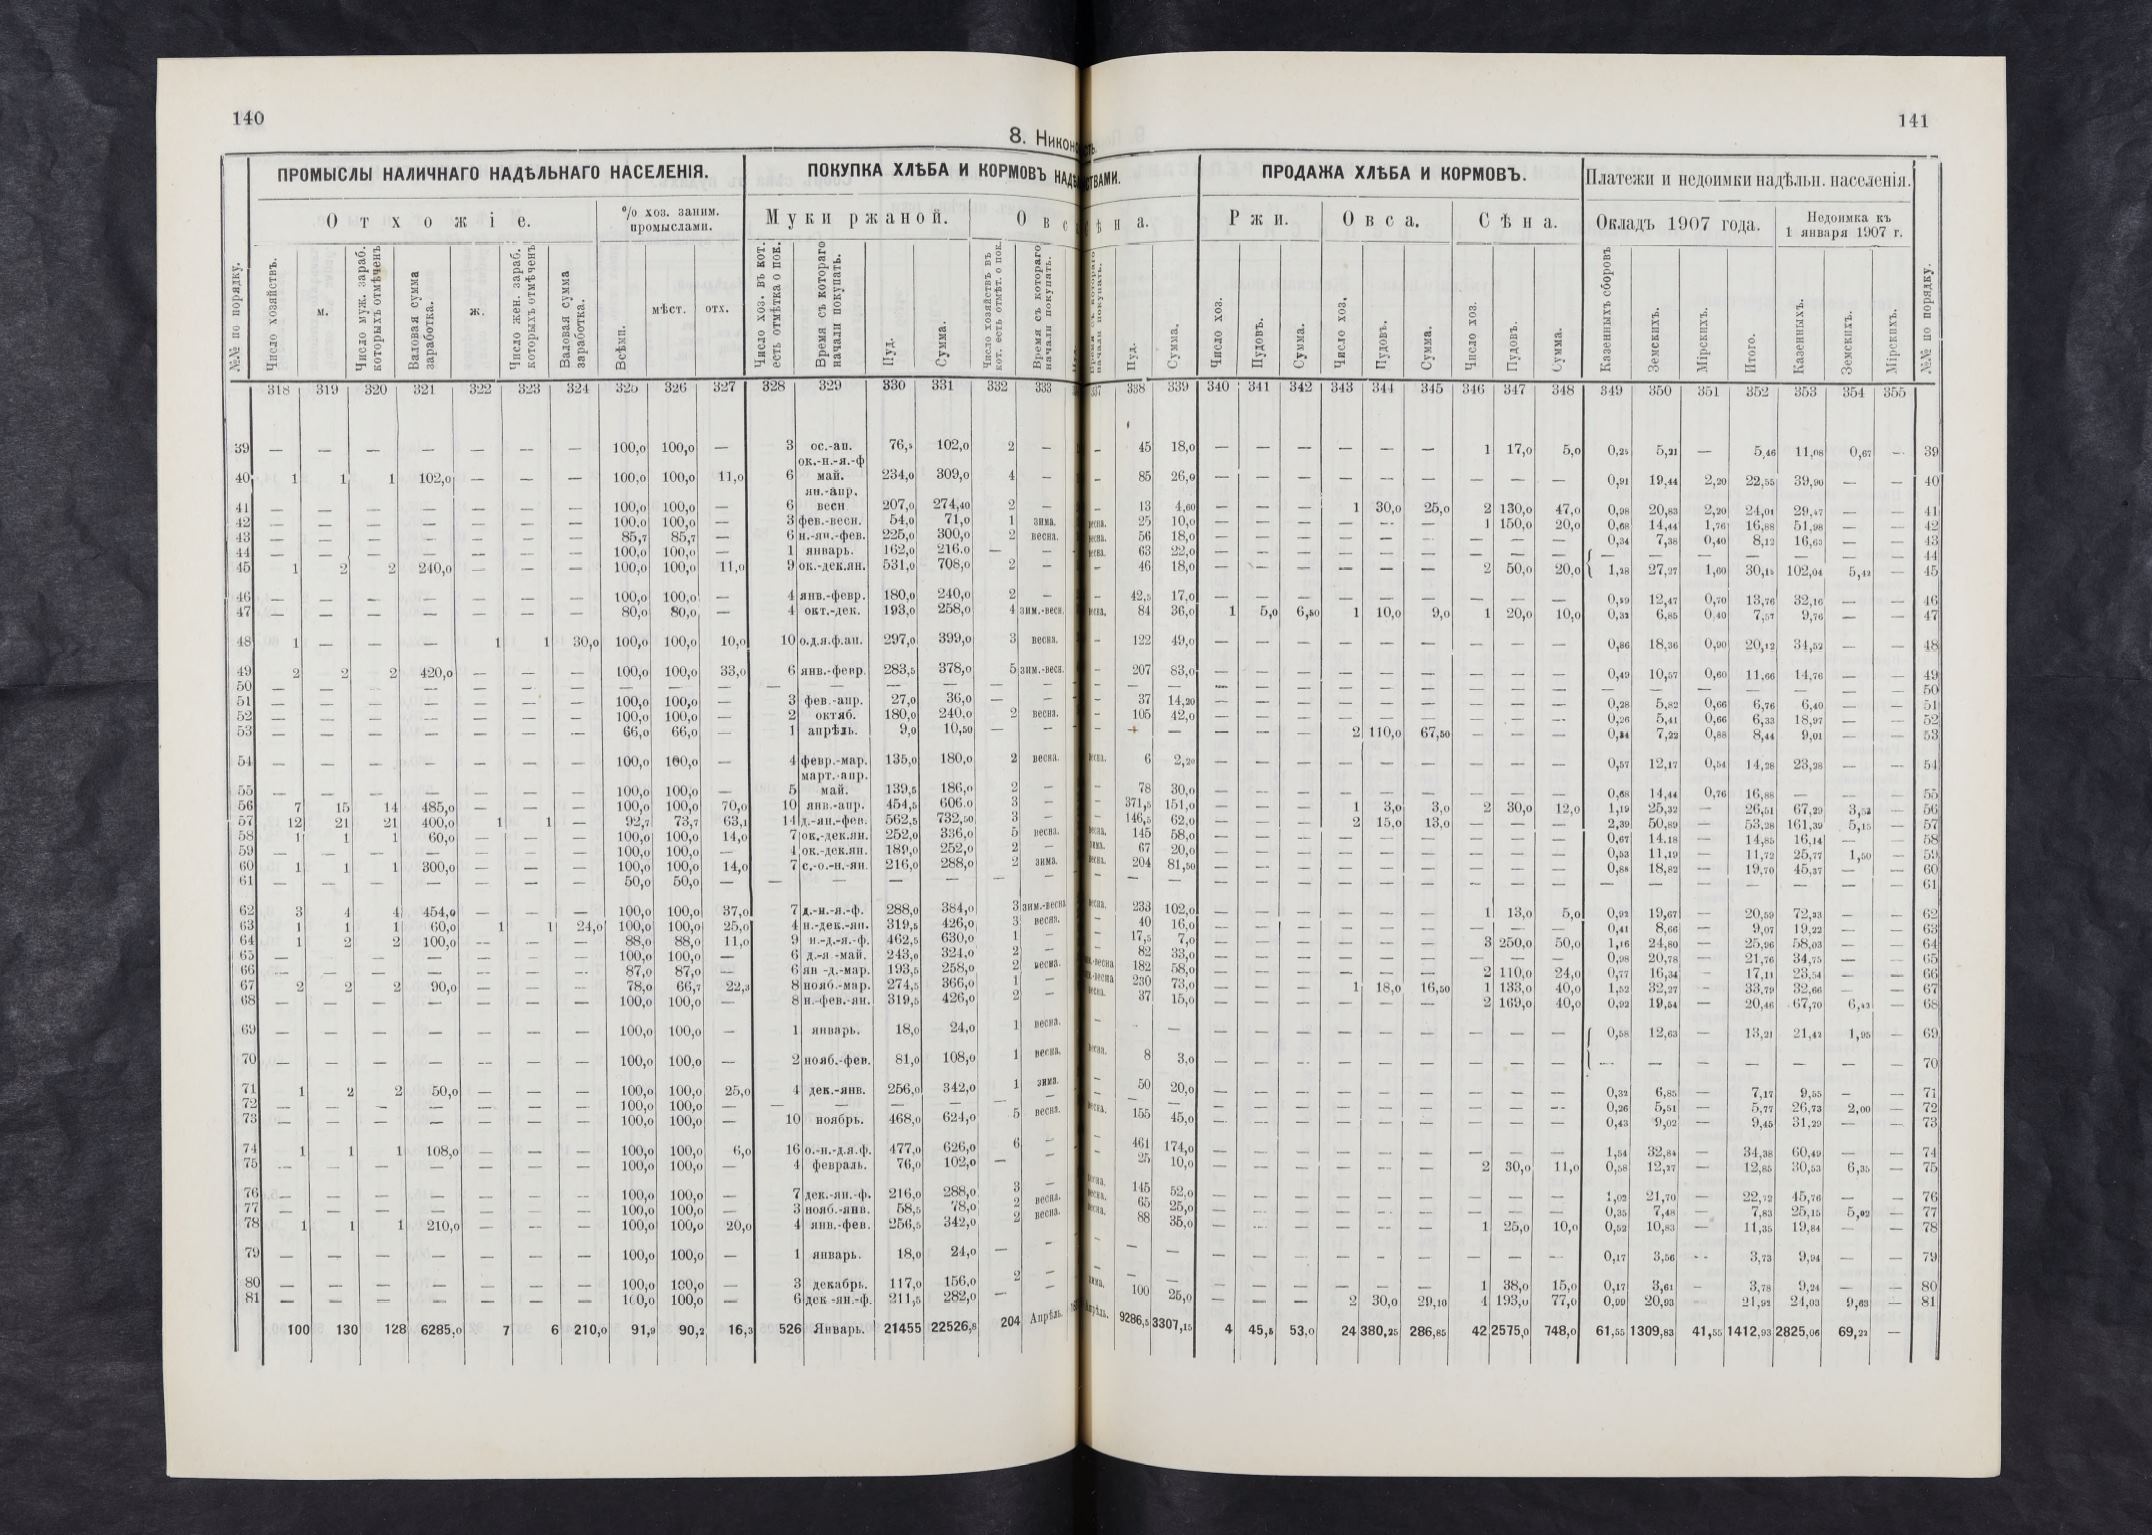 140
141
8. Никон
ПРОМЫСЛЫ НАЛИЧНАГО НАДѢЛЬНАГО НАСЕЛЕНІЯ.
ПОКУПКА ХЛѢБА И КОРМОВЪ
ПРОДАЖА ХЛѢБА И КОРМОВЪ.
Платежи и недоимки надѣльн. населенія.
Отхожіе.
% хоз. заним. промыслами.
Муки ржаной.
Ржи.
Овса.
Сѣна.
Окладъ 1907 года.
Недоимка къ 1 января 1907 г.
№№ по порядку.
Число хозяйствъ.
м.
Число муж. зараб. которыхъ отмѣченъ
Валовая сумма заработка.
ж.
Число жен. зараб. которыхъ отмѣченъ
Валовая сумма заработка.
Всѣмп.
мѣст.
отх.
Число хоз. въ кот. есть отмѣтка о пок.
Время съ котораго начали покупать.
Пуд.
Сумма.
Число хозяйствъ въ кот. есть отмѣт. о пок.
Время съ котораго начали покупать.
Пуд.
Сумма.
Число хоз.
Пудовъ.
Сумма.
Число хоз.
Пудовъ.
Сумма.
Число хоз.
Пудовъ.
Сумма.
Казенныхъ сборовъ
Земскихъ.
Мірскихъ.
Итого.
Казенныхъ.
Земскихъ.
Мірскихъ.
№№ по порядку.
318 319 320 321 322 323 324 325 326 327 328 329 330 331 332 333 337 338 339 340 341 342 343 344 345 346 347 348 349 350 351 352 353 354 355
39 — — — — — — — 100,0 100,0 — 3 ос.-ап. 76,5 102,0 2 — — 45 18,0 — — — — — — 1 17,0 5,0 0,25 5,21 — 5,46 11,08 0,67 — 39
ок.-н.-я.-ф
40 1 1 1 102,0 — — — 100,0 100,0 11,0 6 май. 234,0 309,0 4 — — 85 26,0 — — — — — — — — — 0,91 19,44 2,20 22,55 39,90 — — 40
ян.-апр.
41 — — — — — — — 100,0 100,0 — 6 весн 207,0 274,40 2 — — 13 4,60 — — — 1 30,0 25,0 2 130,0 47,0 0,98 20,83 2,20 24,01 29,47 — — 41
42 — — — — — — — 100,0 100,0 — 3 фев.-весн. 54,0 71,0 1 зима. весна. 25 10,0 — — — — — — 1 150,0 20,0 0,68 14,44 1,76 16,88 51,98 — — 42
43 — — — — — — — 85,7 85,7 — 6 н.-ян.-фев. 225,0 300,0 2 весна. весна. 56 18,0 — — — — — — — — — 0,34 7,38 0,40 8,12 16,63 — — 43
44 — — — — — — — 100,0 100,0 — 1 январь. 162,0 216.0 — — весна. 63 22,0 — — — — — — — — — — — — — — — — 44
45 1 2 2 240,0 — — — 100,0 100,0 11,0 9 ок.-дек.ян. 531,0 708,0 2 — — 46 18,0 — — — — — — 2 50,0 20,0 1,28 27,27 1,60 30,15 102,04 5,42 — 45
46 — — — — — — — 100,0 100,0 — 4 янв.-февр. 180,0 240,0 2 — — 42,5 17,0 — — — — — — — — — 0,59 12,47 0,70 13,76 32,16 — — 46
47 — — — — — — — 80,0 80,0 — 4 окт.-дек. 193,0 258,0 4 зим.-весн. весна. 84 36,0 1 5,0 6,50 1 10,0 9,0 1 20,0 10,0 0,32 6,85 0,40 7,57 9,76 — — 47
48 1 — — — 1 1 30,0 100,0 100,0 10,0 10 о.д.я.ф.ап. 297,0 399,0 3 весна. — 122 49,0 — — — — — — — — — 0,86 18,36 0,90 20,12 34,52 — — 48
49 2 2 2 420,0 — — — 100,0 100,0 33,0 6 янв.-февр. 283,5 378,0 5 зим.-весн. — 207 83,0 — — — — — — — — — 0,49 10,57 0,60 11,66 14,76 — — 49
50 — — — — — — — — — — — — — — — — — — — — — — — — — — — — — — — — — — — 50
51 — — — — — — — 100,0 100,0 — 3 фев.-апр. 27,0 36,0 — — — 37 14,20 — — — — — — — — — 0,28 5,82 0,66 6,76 6,40 — — 51
52 — — — — — — — 100,0 100,0 — 2 октяб. 180,0 240,0 2 весна. — 105 42,0 — — — — — — — — — 0,26 5,41 0,66 6,33 18,97 — — 52
53 — — — — — — — 66,0 66,0 — 1 апрѣль. 9,0 10,50 — — — — — — — — 2 110,0 67,50 — — — 0,34 7,22 0,88 8,44 9,01 — — 53
54 — — — — — — — 100,0 100,0 — 4 февр.-мар. 135,0 180,0 2 весна. весна. 6 2,20 — — — — — — — — — 0,57 12,17 0,54 14,28 23,28 — — 54
март.-апр.
55 — — — — — — — 100,0 100,0 — 5 май. 139,5 186,0 2 — — 78 30,0 — — — — — — — — — 0,68 14,44 0,76 16,88 — — — 55
56 7 15 14 485,0 — — — 100,0 100,0 70,0 10 янв.-апр. 454,5 606.0 3 — — 371,5 151,0 — — — 1 3,0 3,0 2 30,0 12,0 1,19 25,32 — 26,51 67,29 3,52 — 56
57 12 21 21 400,0 1 1 — 92,7 73,7 63,1 14 д.-ян.-фев. 562,5 732,50 3 — — 146,5 62,0 — — — 2 15,0 13,0 — — — 2,39 50,89 — 53,28 161,39 5,15 — 57
58 1 1 1 60,0 — — — 100,0 100,0 14,0 7 ок.-дек.ян. 252,0 336,0 5 весна. весна. 145 58,0 — — — — — — — — — 0,67 14.18 — 14,85 16,14 — — 58
59 — — — — — — — 100,0 100,0 — 4 ок.-дек.ян. 189,0 252,0 2 — зима. 67 20,0 — — — — — — — — — 0,53 11,19 — 11,72 25,77 1,50 — 59
60 1 1 1 300,0 — — — 100,0 100,0 14,0 7 с.-о.-н.-ян. 216,0 288,0 2 зима. весна. 204 81,50 — — — — — — — — — 0,88 18,82 — 19,70 45,37 — — 60
61 — — — — — — — 50,0 50,0 — — — — — — — — — — — — — — — — — — — — — — — — — — 61
62 3 4 4 454,0 — — — 100,0 100,0 37,0 7 д.-н.-я.-ф. 288,0 384,0 3 зим.-весна весна. 233 102,0 — — — — — — 1 13,0 5,0 0,92 19,67 — 20,59 72,33 — — 62
63 1 1 1 60,0 1 1 24,0 100,0 100,0 25,0 4 н.-дек.-ян. 319,5 426,0 3 весна. — 40 16,0 — — — — — — — — — 0,41 8,66 — 9,07 19,22 — — 63
64 1 2 2 100,0 — — — 88,0 88,0 11,0 9 н.-д.-я.-ф. 462,5 630,0 1 — — 17,5 7,0 — — — — — — 3 250,0 50,0 1,16 24,80 — 25,96 58,03 — — 64
65 — — — — — — — 100,0 100,0 — 6 д.-я -май. 243,0 324,0 2 — — 82 33,0 — — — — — — — — — 0,98 20,78 — 21,76 34,75 — — 65
66 — — — — — — — 87,0 87,0 — 6 ян -д.-мар. 193,5 258,0 2 весна. 182 58,0 — — — — — — 2 110,0 24,0 0,77 16,34 — 17,11 23,54 — — 66
67 2 2 2 90,0 — — — 78,0 66,7 22,3 8 нояб.-мар. 274,5 366,0 1 — 230 73,0 — — — 1 18,0 16,50 1 133,0 40,0 1,52 32,27 — 33,79 32,66 — — 67
68 — — — — — — — 100,0 100,0 — 8 н.-фев.-ян. 319,5 426,0 2 — весна. 37 15,0 — — — — — — 2 169,0 40,0 0,92 19,54 — 20,46 67,70 6,43 — 68
69 — — — — — — — 100,0 100,0 — 1 январь. 18,0 24,0 1 весна. — — — — — — — — — — — — 0,58 12,63 — 13,21 21,42 1,95 — 69
70 — — — — — — — 100,0 100,0 — 2 нояб.-фев. 81,0 108,0 1 весна. весна. 8 3,0 — — — — — — — — — — — — — — — — 70
71 1 2 2 50,0 — — — 100,0 100,0 25,0 4 дек.-янв. 256,0 342,0 1 зима. — 50 20,0 — — — — — — — — — 0,32 6,85 — 7,17 9,55 — — 71
72 — — — — — — — 100,0 100,0 — — — — — — — — — — — — — — — — — — — 0,26 5,51 — 5,77 26,73 2,00 — 72
73 — — — — — — — 100,0 100,0 — 10 ноябрь. 468,0 624,0 5 весна. весна. 155 45,0 — — — — — — — — — 0,43 9,02 — 9,45 31,29 — — 73
74 1 1 1 108,0 — — — 100,0 100,0 6,0 16 о.-н.-д.я.ф. 477,0 626,0 6 — — 461 174,0 — — — — — — — — — 1,54 32,84 — 34,38 60,49 — — 74
75 — — — — — — — 100,0 100,0 — 4 февраль. 76,0 102,0 — — — 25 10,0 — — — — — — 2 30,0 11,0 0,58 12,27 — 12,85 30,53 6,35 — 75
76 — — — — — — — 100,0 100,0 — 7 дек.-ян.-ф. 216,0 288,0 3 — весна. 145 52,0 — — — — — — — — — 1,02 21,70 — 22,72 45,76 — — 76
77 — — — — — — — 100,0 100,0 — 3 нояб.-янв. 58,5 78,0 2 весна. весна. 65 25,0 — — — — — — — — — 0,35 7,48 — 7,83 25,15 5,02 — 77
78 1 1 1 210,0 — — — 100,0 100,0 20,0 4 янв.-фев. 256,5 342,0 2 весна. весна. 88 35,0 — — — — — — 1 25,0 10,0 0,52 10,83 — 11,35 19,84 — — 78
79 — — — — — — — 100,0 100,0 — 1 январь. 18,0 24,0 — — — — — — — — — — — — — — 0,17 3,56 — 3,73 9,94 — — 79
80 — — — — — — — 100,0 100,0 — 3 декабрь. 117,0 156,0 2 — — — — — — — — — — 1 38,0 15,0 0,17 3,61 — 3,78 9,24 — — 80
81 — — — — — — — 100,0 100,0 — 6 дек -ян.-ф. 211,5 282,0 — — зима. 100 25,0 — — — 2 30,0 29,10 4 193,0 77,0 0,99 20,93 — 21,92 24,03 9,63 — 81
100 130 128 6285,0 7 6 210,0 91,9 90,2 16,3 526 Январь. 21455 22526,8 204 Апрѣль. Апрѣль. 9286,5 3307,15 4 45,5 53,0 24 380,25 286,85 42 2575,0 748,0 61,55 1309,83 41,55 1412,93 2825,06 69,22 —